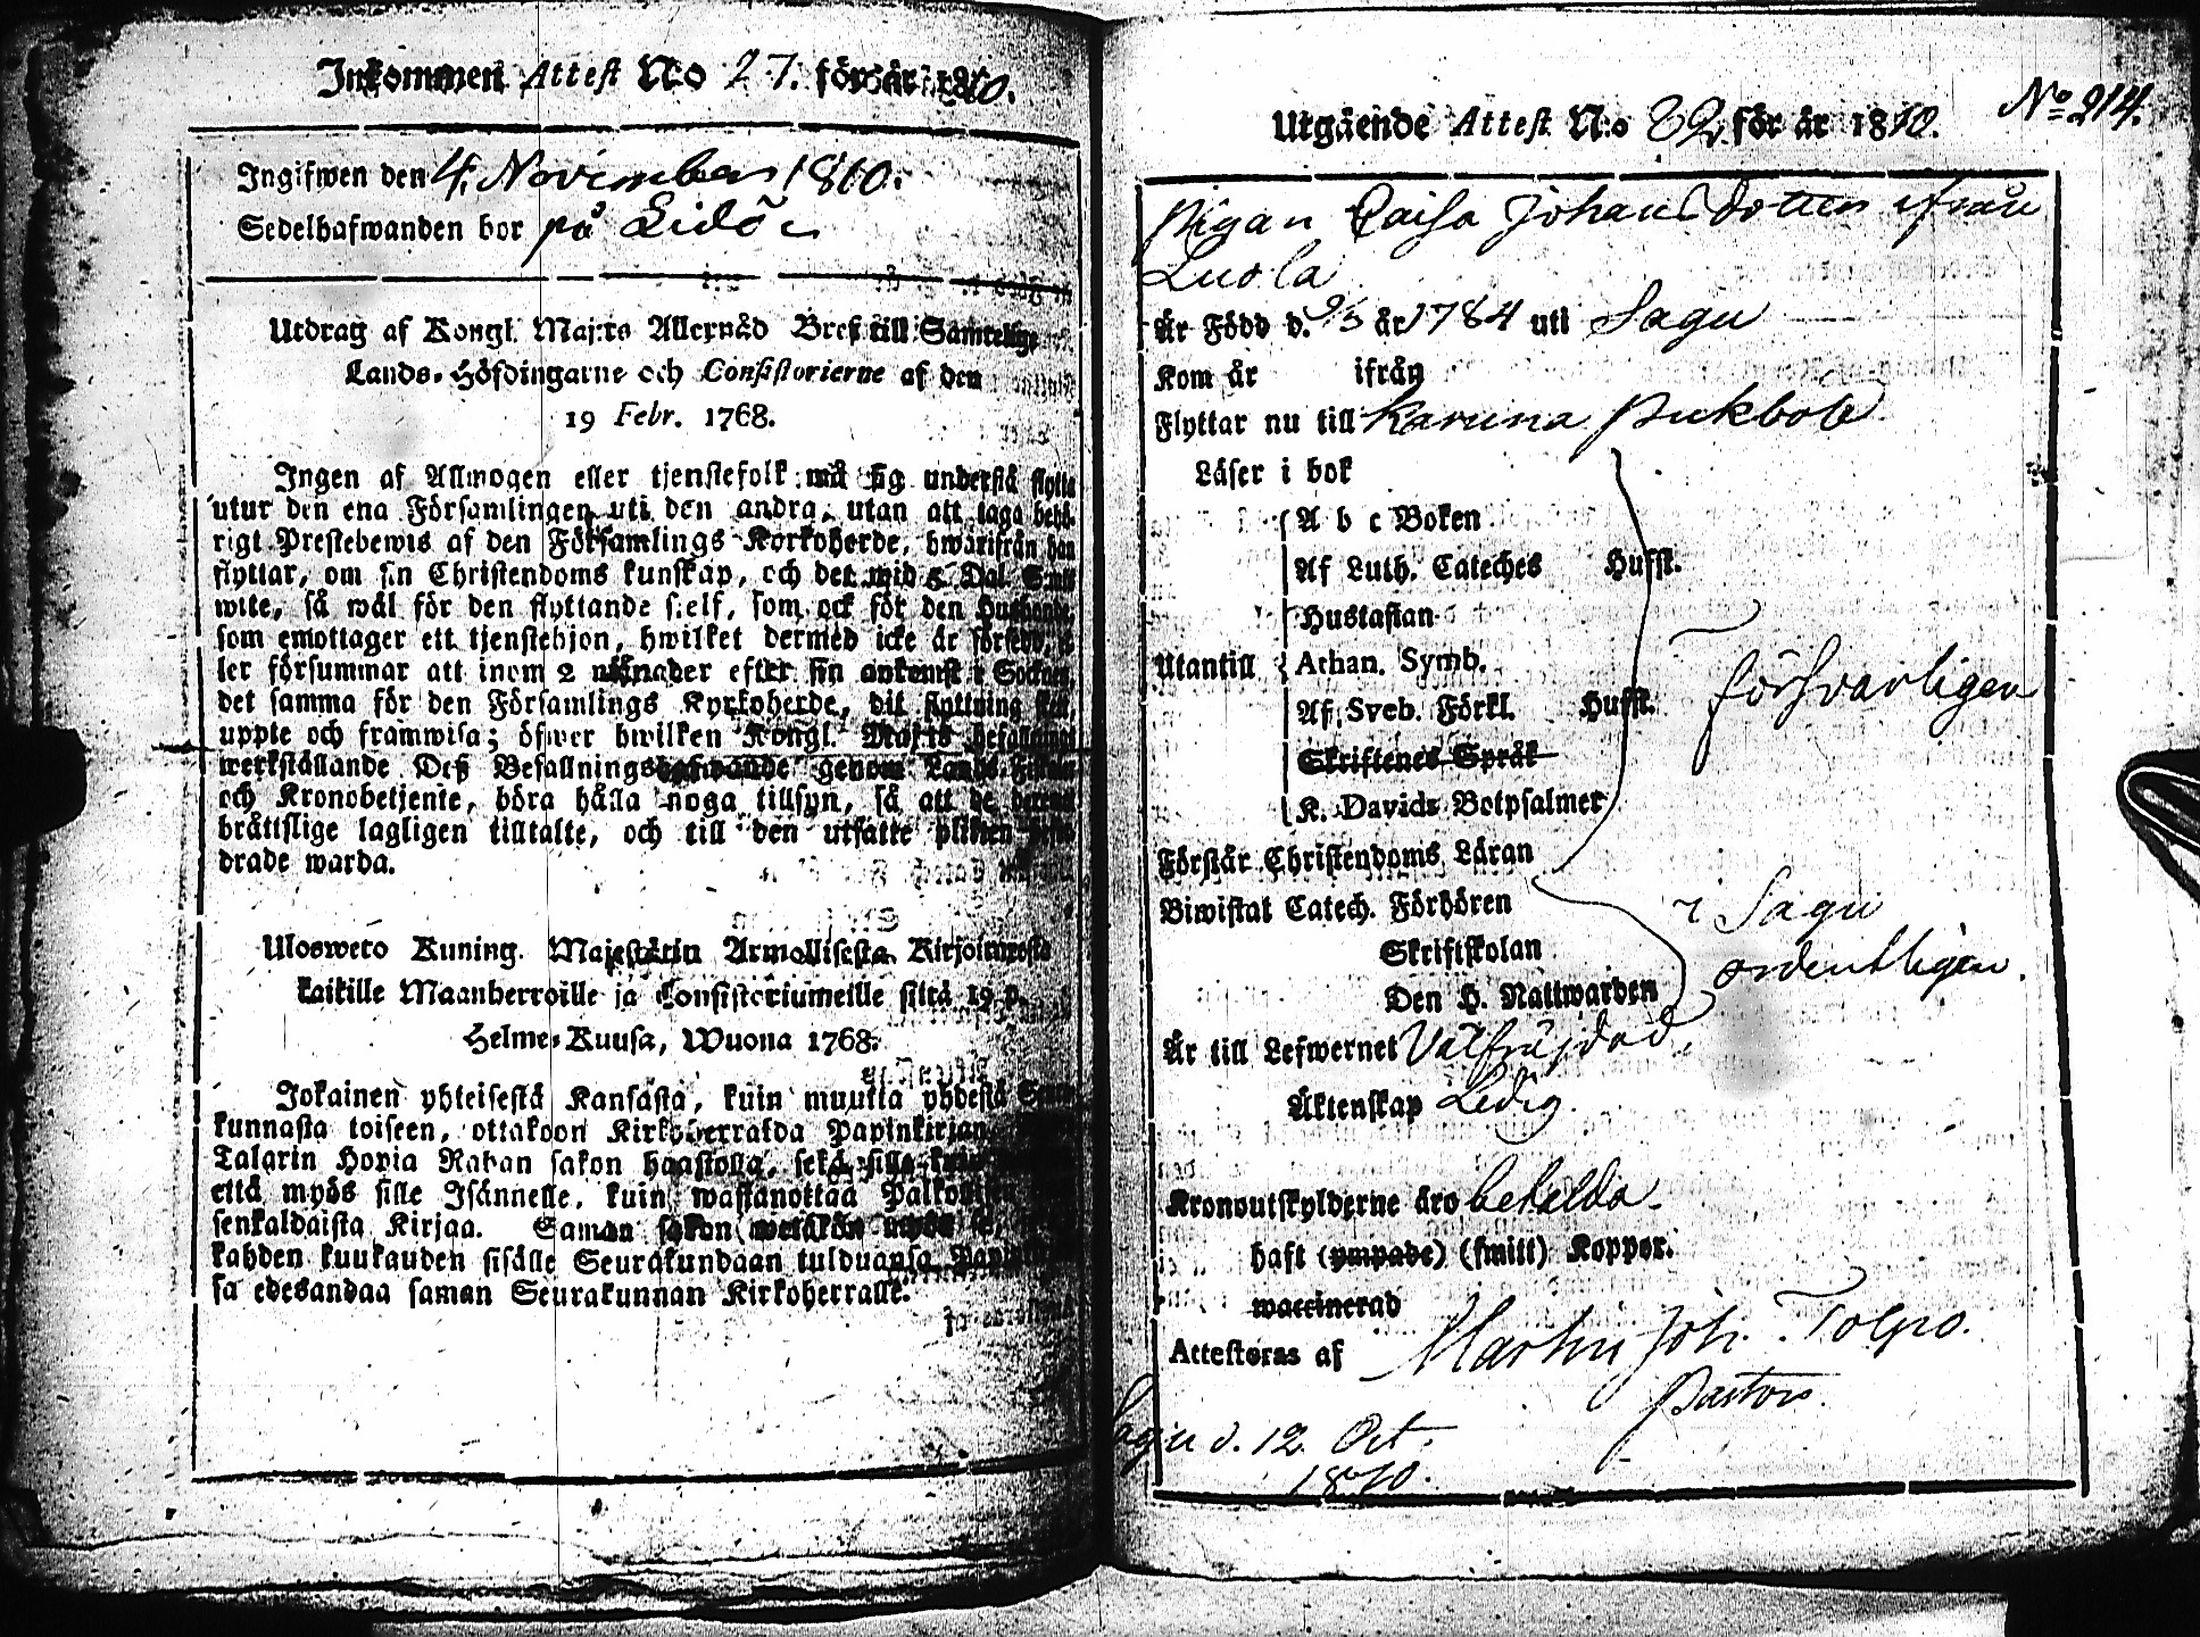 Inkommen Attest No 27. för år 1810.
Ingifwen den 4. November 1810.
Sedelhafwanden bor på Lidö
Utdrag af Kongl. Maj:ts Allernåd Bref till Samtelige
Lands-Höfdingarne och Consistorierne af den
19 Febr. 1768.
Ingen af Allmogen eller tjenstefolk må sig understå flytta
utur den ena Församlingen uti den andra, utan att taga behö-
rigt Prestebewis af den Församlings Kyrkoherde, hwarifrån han
flyttar, om sin Christendoms kunskap, och det wid 5 Dal. S:mts
wite, så wäl för den flyttande sielf, som ock för den Husbonde,
som emottager ett tjenstehjon, hwilket dermed icke är försedt, el-
ler försummar att inom 2 månader efter sin ankomst i Socknen
det samma för den Församlings Kyrkoherde, dit flyttning sker,
uppte och framwisa; öfwer hwilken Kongl. Maj:ts befallnings
werkställande Deß Befallningshafwande genom Lands-Fiskaler
och Kronobetjente, böra hålla noga tillsyn, så att de
bråttslige lagligen tilltalte, och till den utsatte plikten
drade warda.
Ulosweto Kuning. Majestätin Armollisesta Kirjoituxesta
kaikille Maanherroille ja Consistoriumeille siitä 19 p.
Helme-Kuusa, Wuona 1768.
Jokainen yhteisestä Kansasta, kuin muutta yhdestä Seura-
kunnasta toiseen, ottakoon Kirkoherralda Papinkirjan
Talarin Hopia Rahan sakon haastolla, sekä sille kuin
että myös sille Isännelle, kuin wastanottaa Palkollisen
senkaldaista Kirjaa. Saman sakon wetäkön myös se,
kahden kuukauden sisälle Seurakundaan tulduansa Papin
sa edesandaa saman Seurakunnan Kirkoherralle.
No 214.
Utgående Attest N:o 82 för år 1810.
Pigan Caisa Johansdotter ifrån
Luola
Är Född d. 9/5 år 1784 uti Sagu
Kom år ifrån
Flyttar nu till Karuna Pukbole
Läser i bok
A b c Boken
Af Luth. Cateches Hufst.
Hustaflan
Utantill Athan. Symb.
Af Sveb. Förkl. Hufst.
försvarligen
Skriftenes Språk
K. Davids Botpsalmer
Förstår Christendoms Läran
Biwistat Catech. Förhören
i Sagu
Skriftskolan
ordentligen.
Den H. Nattwarden
Är till Lefwernet Välfräjdad.
Äktenskap Ledig.
Kronoutskylderne äro betalda
haft (ympade) (smitt) Koppor.
waccinerad
Attesteras af Martin Joh. Tolpo.
Pastor.
Sagu d. 12 Oct.
1810.